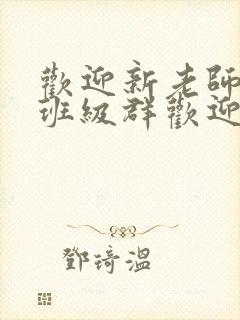 歡迎新老師
班級群歡迎
鄧琦溫